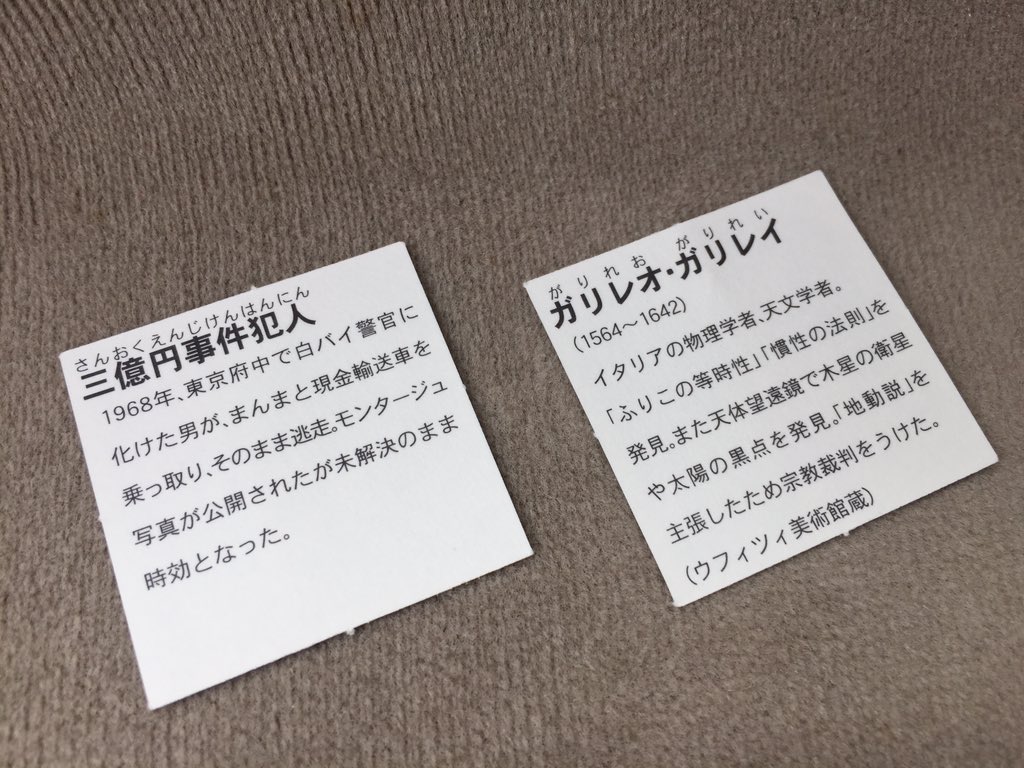 さんおくえんじけんはんにん
三億円事件犯人
1968年、東京府中で白バイ警官に
化けた男が、まんまと現金輸送車を
乗っ取り、そのまま逃走。モンタージュ
写真が公開されたが未解決のまま
時効となった。
がりれお がりれい
ガリレオ・ガリレイ
(1564〜1642)
イタリアの物理学者、天文学者。
「ふりこの等時性」「慣性の法則」を
発見。また天体望遠鏡で木星の衛星
や太陽の黒点を発見。「地動説」を
主張したため宗教裁判をうけた。
(ウフィツィ美術館蔵)